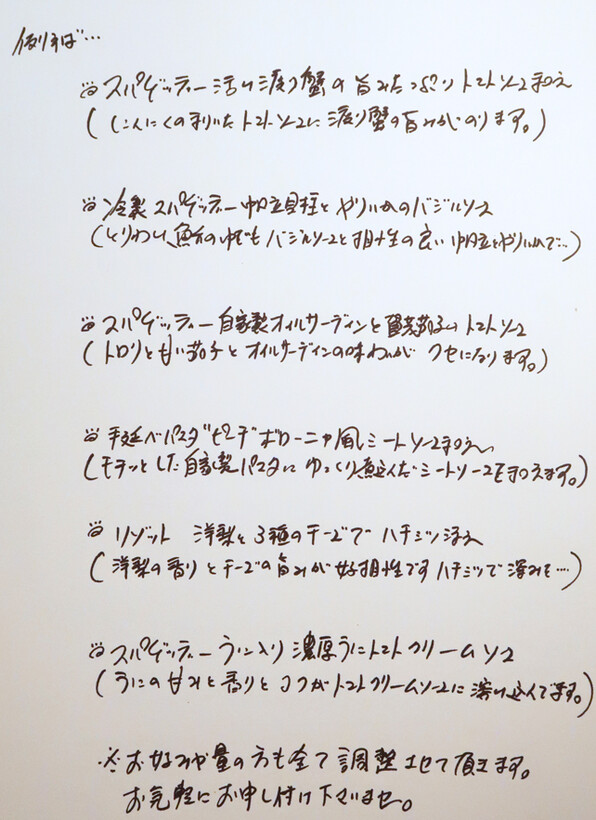 例えば…
スパゲッティー 活〆渡り蟹の旨みたっぷりトマトソース和え
(にんにくのきいたトマトソースに渡り蟹の旨みがのります。)
冷製スパゲッティー 帆立貝柱とやりいかのバジルソース
(とりわけ、魚介の中でもバジルソースと相性の良い帆立とやりいかで…)
スパゲッティー 自家製オイルサーディンと賀茂茄子のトマトソース
(トロリと甘い茄子とオイルサーディンの味わいがクセになります。)
手延べパスタ"ピーチ"ボローニャ風ミートソース和え
(モチッとした自家製パスタにゆっくり煮込んだミートソースを和えます。)
リゾット 洋梨と3種のチーズで ハチミツ添え
(洋梨の香りとチーズの旨みが好相性です ハチミツで深みを…)
スパゲッティー うに入り 濃厚うにトマトクリームソース
(うにの甘みと香りとコクがトマトクリームソースに溶け込んでます。)
※お好みや量の方も全て調整させて頂きます。
お気軽にお申し付け下さいませ。